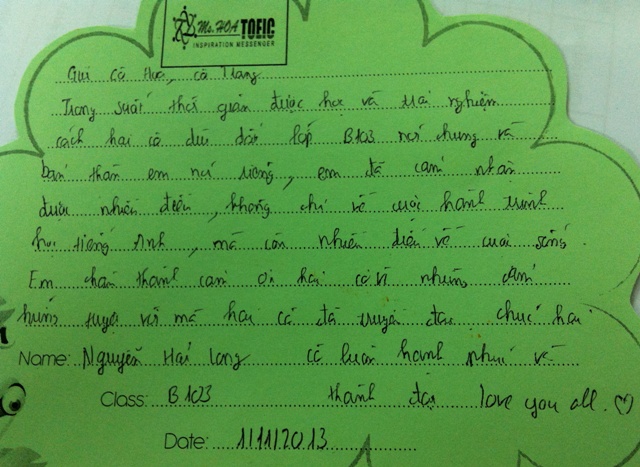 Ms. HOA TOEIC
INSPIRATION MESSENGER
Gửi cô Hoa, cô Trang
Trong suốt thời gian được học và trải nghiệm
cách hai cô dìu dắt lớp B103 nói chung và
bản thân em nói riêng, em đã cảm nhận
được nhiều điều, không chỉ về cuộc hành trình
học tiếng Anh, mà còn nhiều điều về cuộc sống.
Em chân thành cảm ơn hai cô vì những cảm
hứng tuyệt vời mà hai cô đã truyền đạt. Chúc hai
Name: Nguyễn Hải Long cô luôn hạnh phúc và
Class: B103 thành đạt love you all. ♡
Date: 1/11/2013